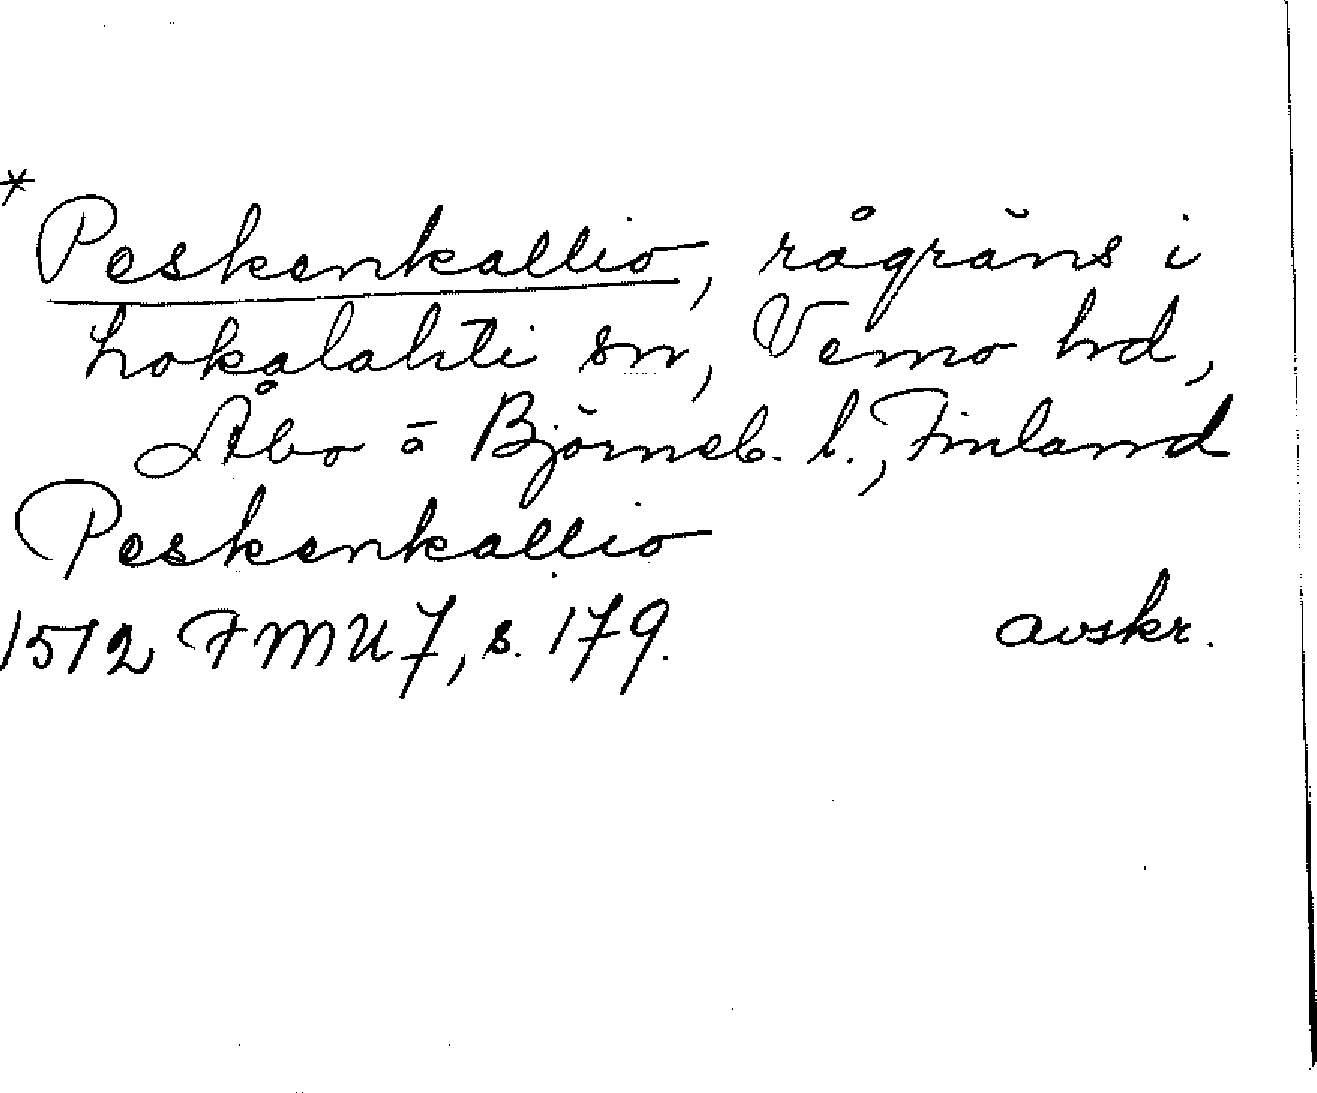 * Peskenkallio, rågräns i
Lokalahti sn, Vemo hd,
Åbo ö Björneb. l., Finland
Peskenkallio
1512 FMU 7, s. 179. avskr.